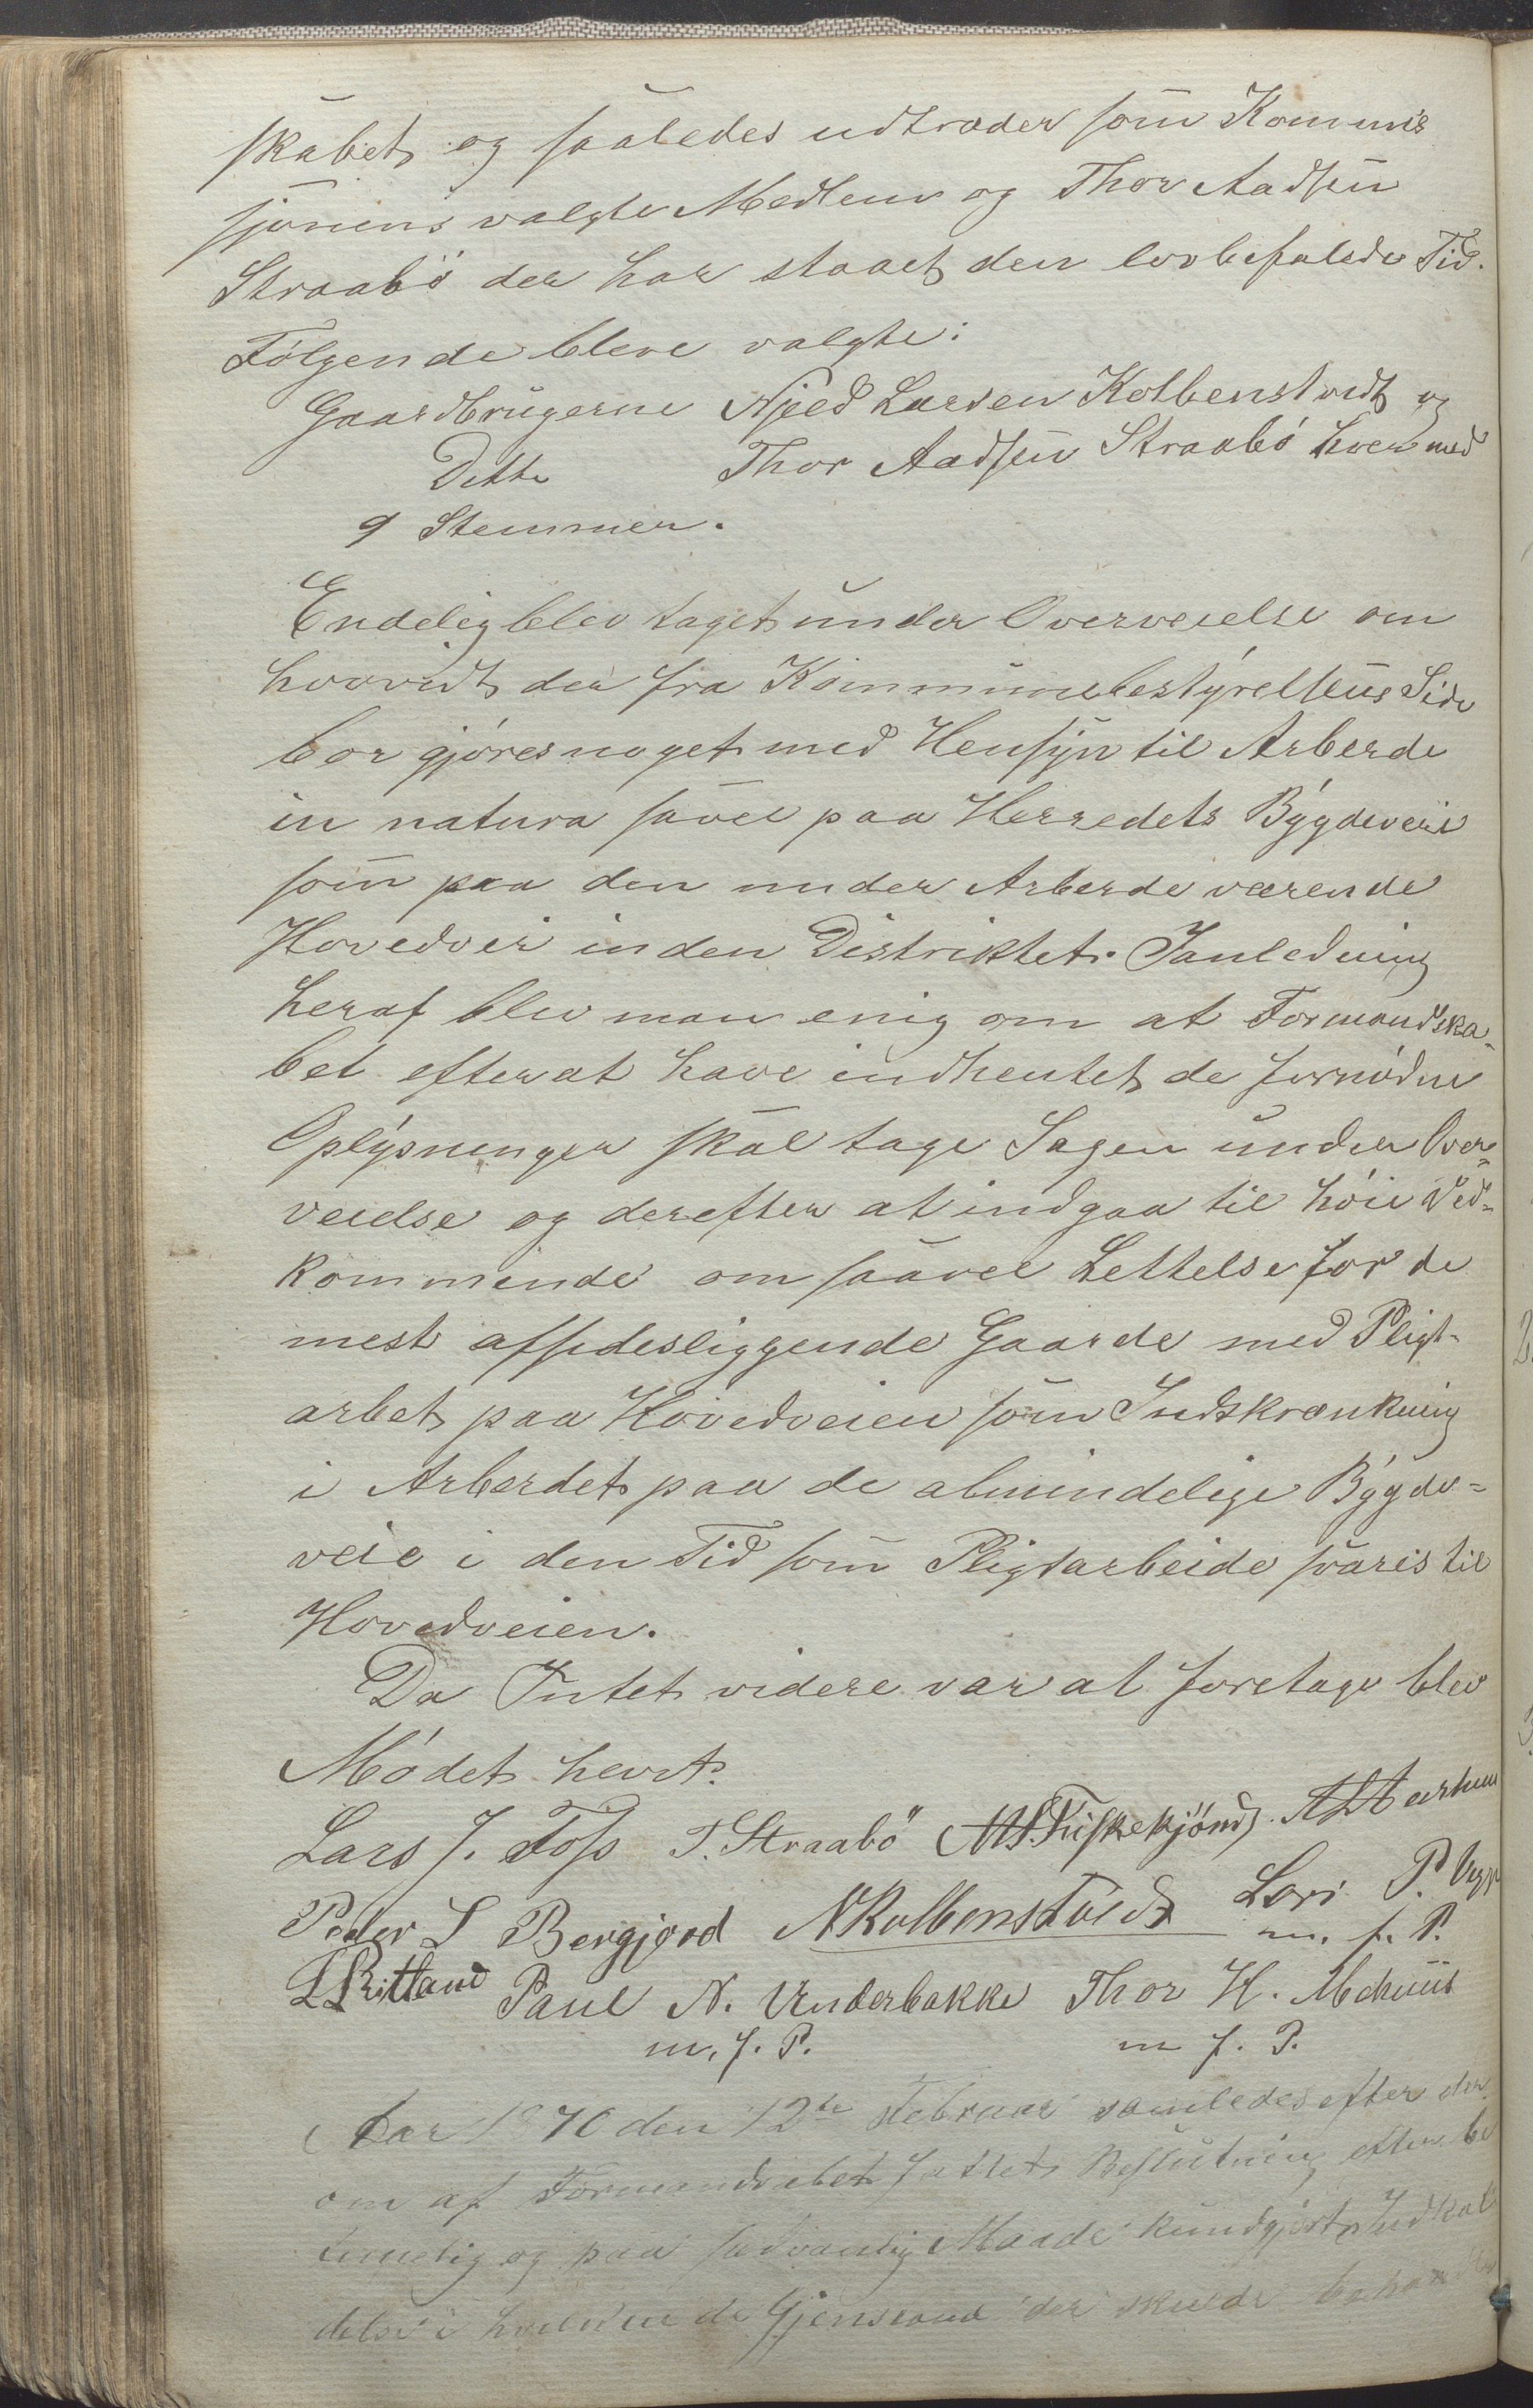 skabet og saaledes udtræder som Kommis
sjonens valgte Medlem og Thor Aadsen
Straabö der har staaet den lovbefalede Tid.
Følgende bleve valgte:
Gaardbrugerne Njed Larsen Kolbenstvedt og
Ditto Thor Aadsen Straabö hver med
9 Stemmer.
Endelig blev taget under Overveielse om
hvorvidt der fra Kommunebestyrelsens Side
bør gjøres noget med Hensyn til Arbeide
in natura saavel paa Herredets Bygdeveie
som paa den under Arbeide værende
Hovedvei inden Distriktet. Janledning
heraf blev man enig om at Formandska-
bet efterat have indhentet de fornødne
Oplysninger skal tage Sagen under Over-
veielse og derefter at indgaa til höie Ved-
kommende om saavel Lettelse for de
mest afsidesliggende Gaarde med Pligt-
arbet paa Hovedveien som Indskrænkning
i Arbeidet paa de almindelige Bygde-
veie i den Tid som Pligtarbeide svares til
Hovedveien.
Da Intet videre var at foretage blev
Mødet hævt.
Lars J. Foss T. Straabö Fiskekjönd
Peder S Bergjord NKolbenstvedt Lars P.
m. f. P.
Ritland Paul N. Underbakke Thor H. Mehuus
m. f. P. m f. P.
Aar 1870 den 12te Februar samledes efter der
om af Formandskabet fattet Beslutning efter be
timelig og paa sædvanlig Maade kundgjort Indkal
delse i hvilken de Gjenstand der skulde behandles